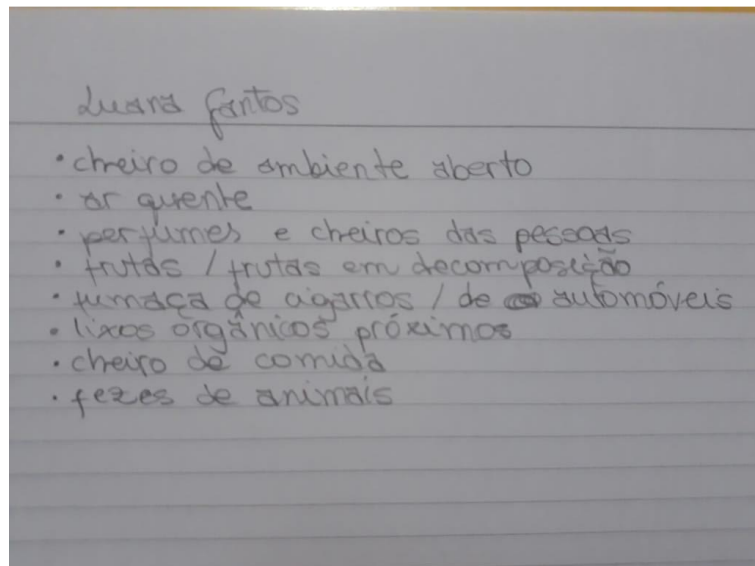 Luana Santos
• cheiro de ambiente aberto
• ar quente
• perfumes e cheiros das pessoas
• frutas / frutas em decomposição
• fumaça de cigarros / de automóveis
• lixos orgânicos próximos
• cheiro de comida
• fezes de animais